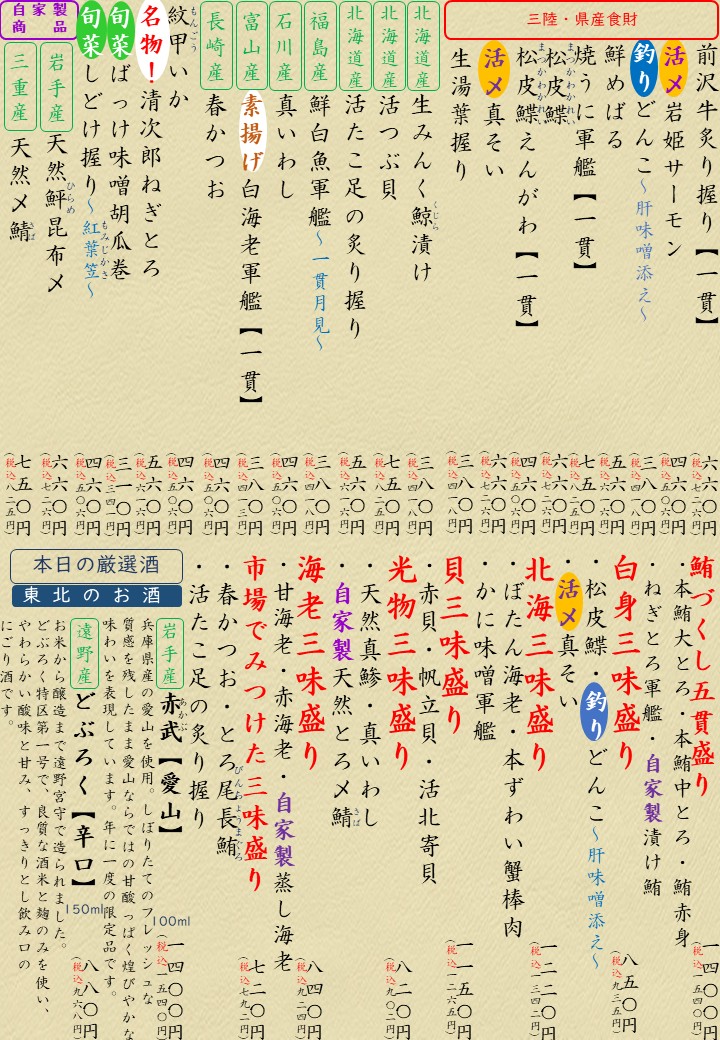 三陸・県産食財
前沢牛炙り握り【一貫】 六六〇円 (税込七二六円)
活〆岩姫サーモン 四六〇円 (税込五〇六円)
釣りどんこ～肝味噌添え～ 三八〇円 (税込四一八円)
鮮めばる 五六〇円 (税込六一六円)
焼うに軍艦【一貫】 七五〇円 (税込八二五円)
松皮鰈 まつかわかれい 六六〇円 (税込七二六円)
松皮鰈えんがわ【一貫】 まつかわかれい 四六〇円 (税込五〇六円)
活〆真そい 六六〇円 (税込七二六円)
生湯葉握り 三八〇円 (税込四一八円)
北海道産 生みんく鯨漬け くじら 三八〇円 (税込四一八円)
北海道産 活つぶ貝 七五〇円 (税込八二五円)
北海道産 活たこ足の炙り握り 五六〇円 (税込六一六円)
福島産 鮮白魚軍艦～一貫月見～ 三八〇円 (税込四一八円)
石川産 真いわし 四六〇円 (税込五〇六円)
富山産 素揚げ白海老軍艦【一貫】 三八〇円 (税込四一三円)
長崎産 春かつお 四六〇円 (税込五〇六円)
紋甲いか もんごう 四六〇円 (税込五〇六円)
名物！清次郎ねぎとろ 五六〇円 (税込六一六円)
旬菜ばっけ味噌胡瓜巻 三一〇円 (税込三四一円)
旬菜しどけ握り～紅葉笠～ もみじかさ 四六〇円 (税込五〇六円)
自家製商品
岩手産 天然鮃昆布〆 ひらめ 六六〇円 (税込七二六円)
三重産 天然〆鯖 さば 七五〇円 (税込八二五円)
鮪づくし五貫盛り
・本鮪大とろ・本鮪中とろ・鮪赤身
・ねぎとろ軍艦・自家製漬け鮪 一四〇〇円 (税込一五四〇円)
白身三味盛り
・松皮鰈・釣りどんこ～肝味噌添え～
活〆真そい 八五〇円 (税込九三五円)
北海三味盛り
・ぼたん海老・本ずわい蟹棒肉
・かに味噌軍艦 一二二〇円 (税込一三四二円)
貝三味盛り
・赤貝・帆立貝・活北寄貝 一一五〇円 (税込一二六五円)
光物三味盛り
・天然真鯵・真いわし
・自家製天然とろ〆鯖 さば 八二〇円 (税込九〇二円)
海老三味盛り
・甘海老・赤海老・自家製蒸し海老 八四〇円 (税込九二四円)
市場でみつけた三味盛り
・春かつお・とろ尾長鮪 びんちょうまぐろ
・活たこ足の炙り握り 七二〇円 (税込七九二円)
本日の厳選酒
東北のお酒
岩手産 赤武【愛山】 あかぶ 100ml 一四〇〇円 (税込一五四〇円)
兵庫県産の愛山を使用。しぼりたてのフレッシュな
質感を残したまま愛山ならではの甘酸っぱく煌びやかな
味わいを表現しています。年に一度の限定品です。
遠野産 どぶろく【辛口】 150ml 八八〇円 (税込九六八円)
お米から醸造まで遠野宮守で造られました。
どぶろく特区第一号で、良質な酒米と麹のみを使い、
やわらかい酸味と甘み、すっきりとし飲み口の
にごり酒です。